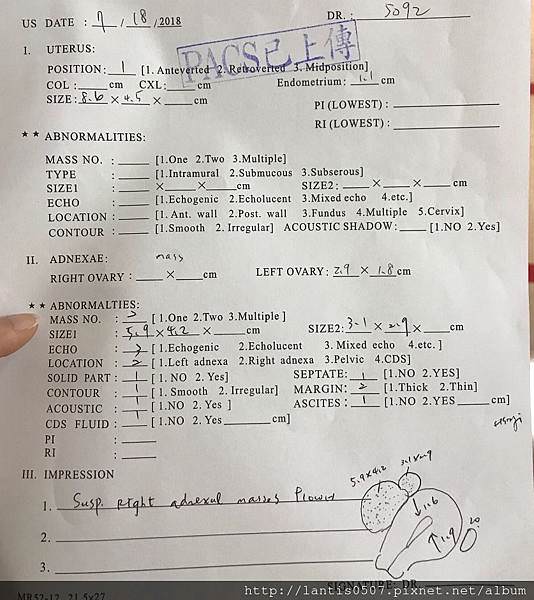 US DATE : 7 / 18 /2018 DR. : 5092
PACS已上傳
I. UTERUS:
POSITION: 1 [1. Anteverted 2. Retroverted 3. Midposition]
COL: cm CXL: cm Endometrium: 1.1 cm
SIZE: 8.6 × 4.5 × cm
PI (LOWEST) :
RI (LOWEST) :
★★ ABNORMALITIES:
MASS NO. : [1.One 2.Two 3.Multiple]
TYPE : [1.Intramural 2.Submucous 3.Subserous]
SIZE1 : × × cm SIZE2: × × cm
ECHO : [1.Echogenic 2.Echolucent 3.Mixed echo 4.etc.]
LOCATION : [1. Ant. wall 2.Post. wall 3.Fundus 4.Multiple 5.Cervix]
CONTOUR : [1.Smooth 2. Irregular] ACOUSTIC SHADOW: [1.NO 2.Yes]
II. ADNEXAE: mass
RIGHT OVARY : × cm LEFT OVARY: 2.9 × 1.8 cm
★★ ABNORMALTIES:
MASS NO. : 2 [1.One 2.Two 3.Multiple ]
SIZE1 5.9 × 4.2 × cm SIZE2: 3.1 × 2.9 × cm
ECHO : 3 [1.Echogenic 2.Echolucent 3. Mixed echo 4.etc. ]
LOCATION : 2 [1.Left adnexa 2.Right adnexa 3.Pelvic 4.CDS]
SOLID PART : 1 [1. NO 2. Yes] SEPTATE: 1 [1.NO 2.YES]
CONTOUR : 1 [1. Smooth 2. Irregular] MARGIN: 2 [1.Thick 2.Thin]
ACOUSTIC : 1 [1.NO 2. Yes ] ASCITES : 1 [1.NO 2.YES cm]
CDS FLUID : 1 [1.NO 2.Yes cm]
PI :
RI :
III. IMPRESSION
5.9×4.2 3.1×2.9
1. Susp. right adnexal masses
1.6
2.
1.9
20.
3.
SIGNATURE: DR.
MR52-12 21.5x27
http://lantis0507.pixnet.net/album